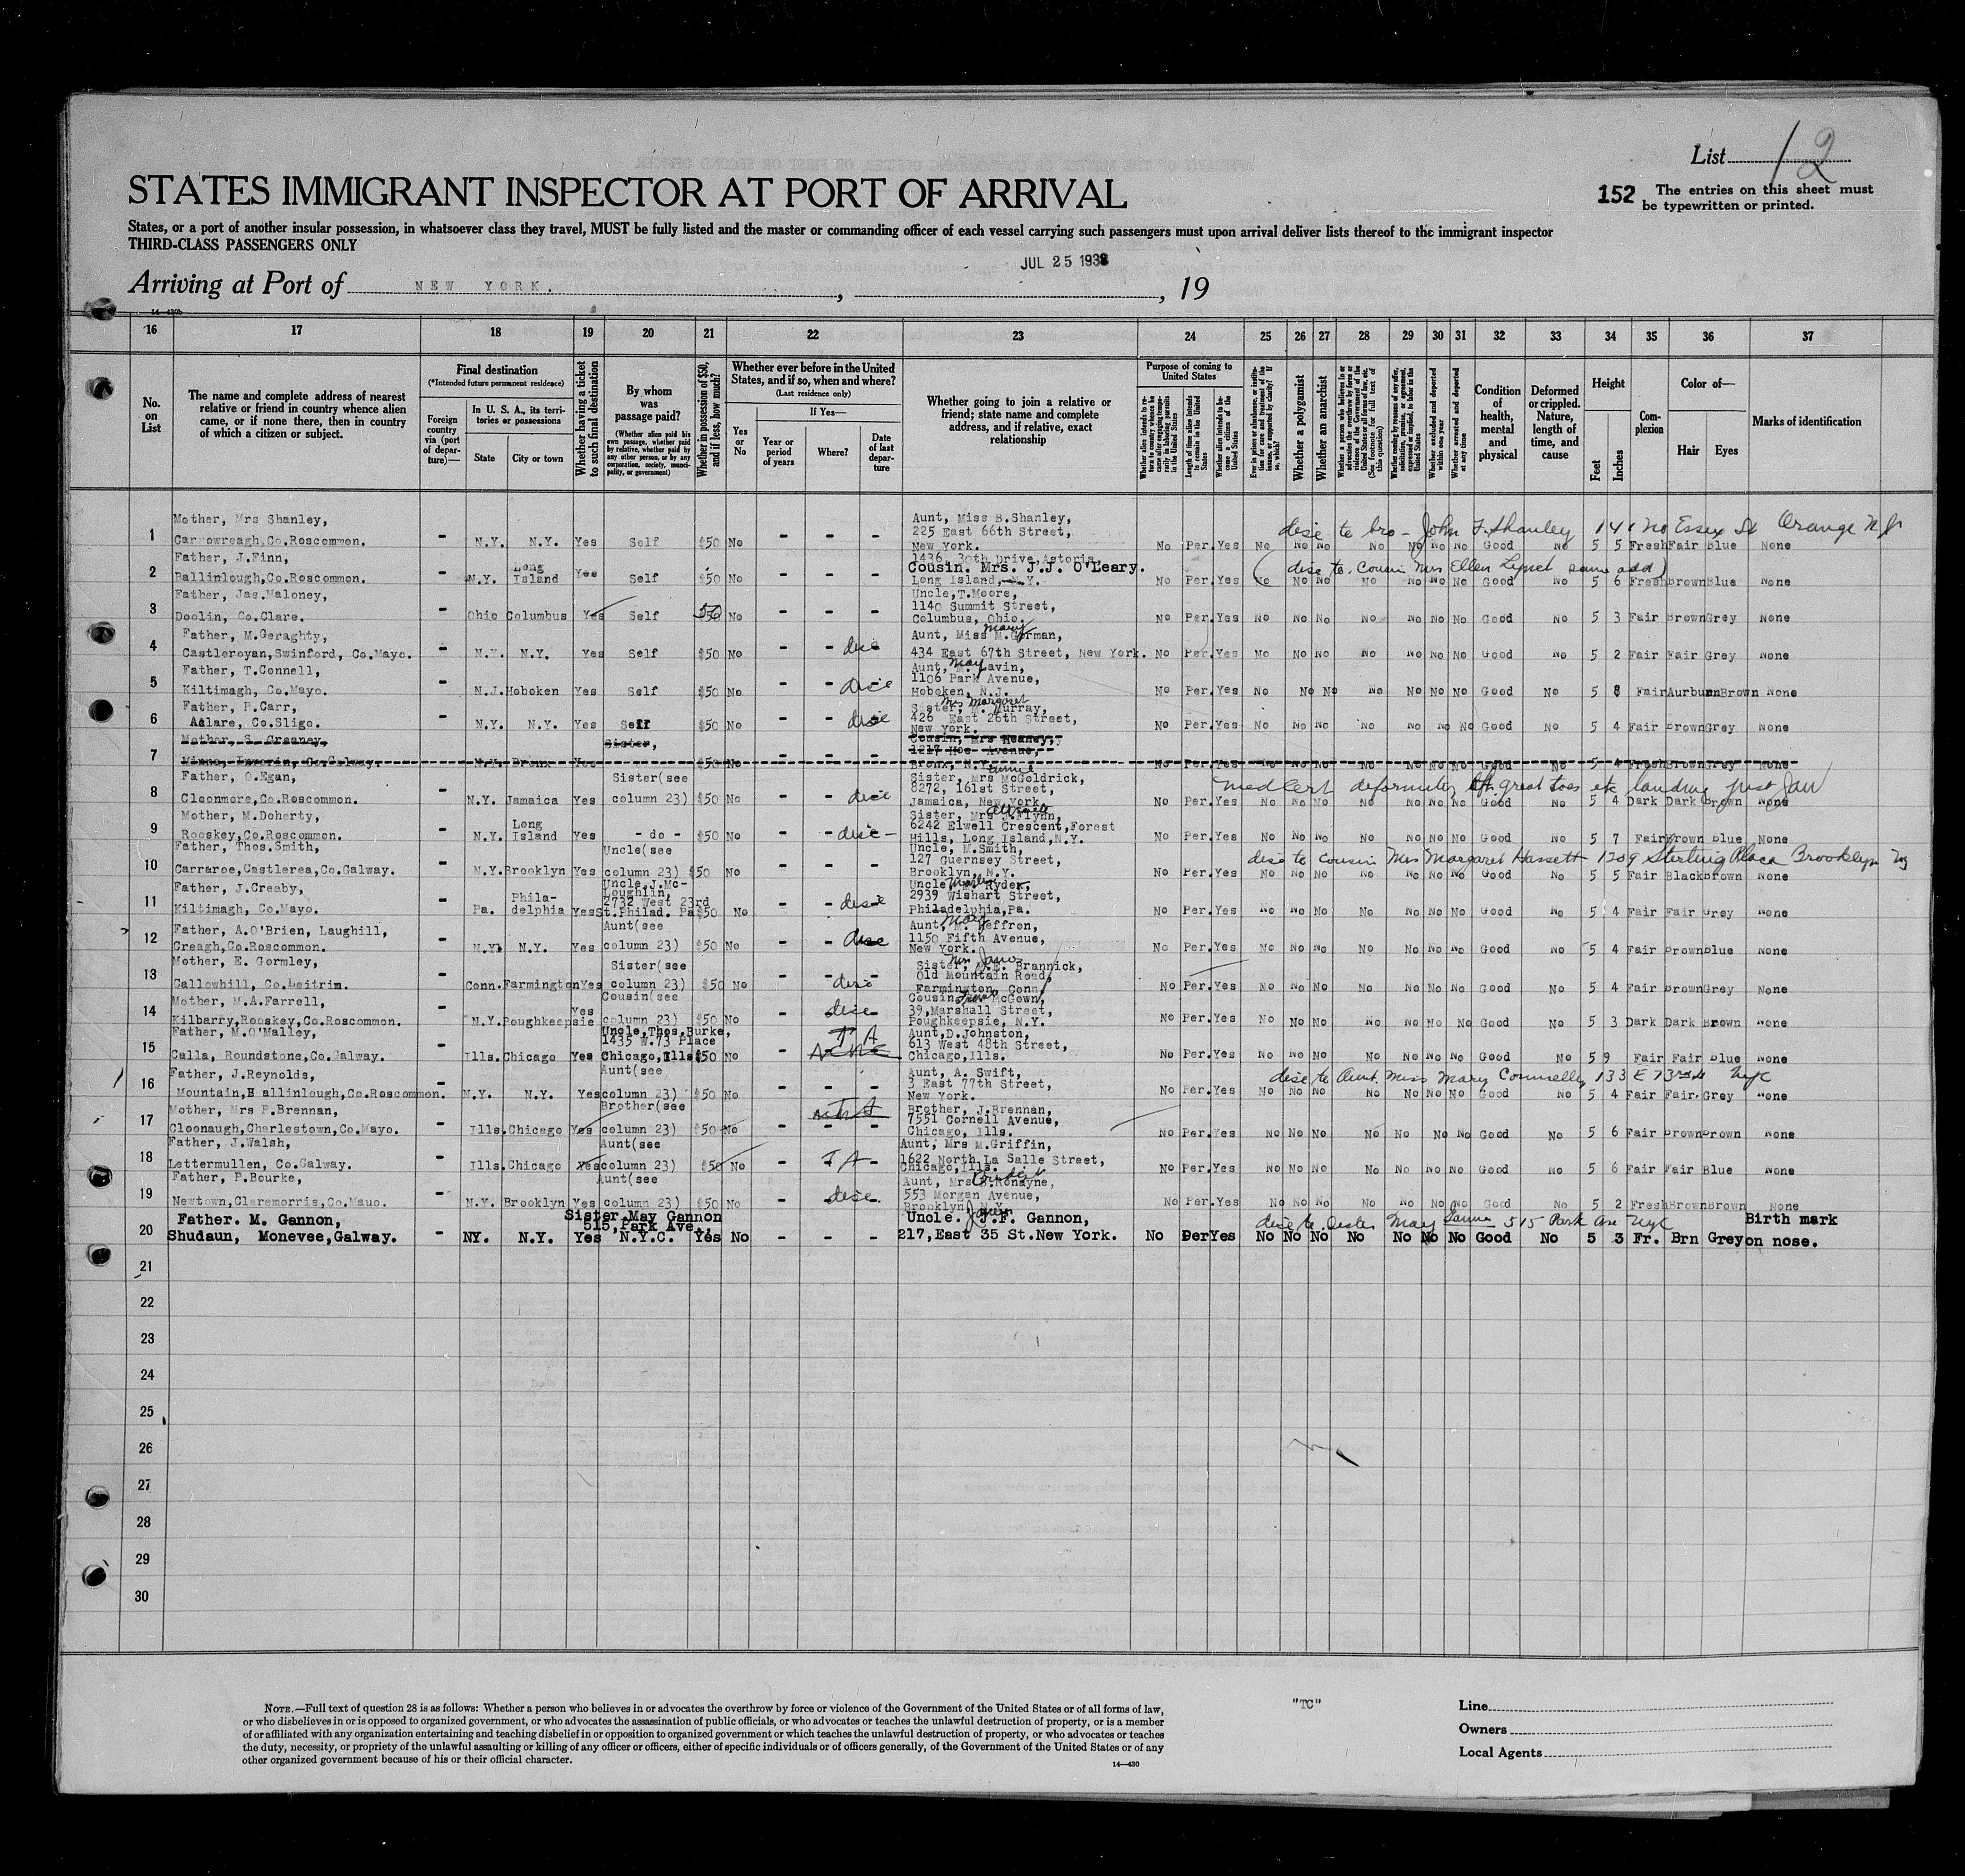 List 12
STATES IMMIGRANT INSPECTOR AT PORT OF ARRIVAL
152 The entries on this sheet must
be typewritten or printed.
States, or a port of another insular possession, in whatsoever class they travel, MUST be fully listed and the master or commanding officer of each vessel carrying such passengers must upon arrival deliver lists thereof to the immigrant inspector
THIRD-CLASS PASSENGERS ONLY
JUL 25 193
Arriving at Port of NEW YORK. , , 19
16 17 18 19 20 21 22 23 24 25 26 27 28 29 30 31 32 33 34 35 36 37
No. on List
The name and complete address of nearest
relative or friend in country whence alien
came, or if none there, then in country
of which a citizen or subject.
Final destination
(*Intended future permanent residence)
Foreign country via (port of departure)—
In U. S. A., its territories or possessions
State City or town
Whether having a ticket to such final destination
By whom was passage paid?
(Whether alien paid his own passage, whether paid by relative, whether paid by any other person, or by any corporation, society, municipality, or government)
Whether in possession of $50, and if less, how much?
Whether ever before in the United
States, and if so, when and where?
(Last residence only)
Yes or No
If Yes—
Year or period of years
Where?
Date of last departure
Whether going to join a relative or
friend; state name and complete
address, and if relative, exact
relationship
Purpose of coming to
United States
Length of time alien intends to remain in the United States
Whether alien intends to become a citizen of the United States
Whether a polygamist
Whether an anarchist
Whether excluded and deported within one year
Whether arrested and deported at any time
Condition of health, mental and physical
Deformed or crippled. Nature, length of time, and cause
Height
Feet Inches
Complexion
Color of—
Hair Eyes
Marks of identification
1 Mother, Mrs Shanley, Aunt, Miss B.Shanley,
225 East 66th Street, disc to bro - John F. Shanley Essex St Orange NJ
Carrowreagh,Co.Roscommon. - N.Y. N.Y. Yes Self $50 No - - - New York. No Per. Yes No No No No No No No Good No 5 5 Fresh Fair Blue None
2 Father, J.Finn, 1436, 30th Drive,Astoria
Long Cousin. Mrs. J.J. O'Leary. (disc to. cousin Mrs Ellen Lynch same add)
Ballinlough,Co.Roscommon. - N.Y. Island Yes Self $50 No - - - Long Island, N.Y. No Per. Yes No No No No No No No Good No 5 6 Fresh Brown Blue None
3 Father, Jas.Maloney, Uncle,T.Moore,
1140 Summit Street,
Doolin, Co.Clare. - Ohio Columbus Yes Self $50 No - - - Columbus, Ohio. No Per. Yes No No No No No No No Good No 5 3 Fair Brown Grey None
4 Father, M.Geraghty, Aunt, Miss M.Gorman, Mary
Castleroyan,Swinford, Co.Mayo. - N.Y. N.Y. Yes Self $50 No - - disc 434 East 67th Street, New York. No Per. Yes No No No No No No No Good No 5 2 Fair Fair Grey None
5 Father, T.Connell, Aunt, May Lavin,
1106 Park Avenue,
Kiltimagh, Co.Mayo. - N.J. Hoboken Yes Self $50 No - - disc Hoboken, N.J. No Per. Yes No No No No No No No Good No 5 8 Fair Aurburn Brown None
6 Father, P.Carr, Sister, M. Murray, Mrs Margaret
426 East 26th Street,
Aclare, Co.Sligo. - N.Y. N.Y. Yes Self $50 No - - disc New York. No Per. Yes No No No No No No No Good No 5 4 Fair Brown Grey None
7 Mother, S. Greaney, Sister, Cousin, Mrs Heaney,
1217 Hoe Avenue,
Minna, Inverin, Co.Galway. N.Y. Bronx Yes $50 No - - - Bronx, N.Y. No Per. Yes No No No No No No No Good No 5 4 Fresh Brown Grey None
8 Father, O.Egan, Sister(see Sister, Mrs McGoldrick,
8272, 161st Street, med cert deformity great toes etc landing
Cloonmore,Co.Roscommon. - N.Y. Jamaica Yes column 23) $50 No - - disc Jamaica, New York. No Per. Yes No No No No No No No Good No 5 4 Dark Dark Brown None
9 Mother, M.Doherty, Long Sister, Mrs Flynn,
6242 Elwell Crescent,Forest
Rooskey,Co.Roscommon. - N.Y. Island Yes - do - $50 No - - disc - Hills, Long Island,N.Y. No Per. Yes No No No No No No No Good No 5 7 Fair Brown Blue None
10 Father, Thos.Smith, Uncle(see Uncle, M.Smith,
127 Guernsey Street, disc to cousin Mrs Margaret Hassett 1209 Sterling Place Brooklyn Ny
Carraroe,Castlerea,Co.Galway. - N.Y. Brooklyn Yes column 23) $50 No - - - Brooklyn, N.Y. No Per. Yes No No No No No No No Good No 5 5 Fair Black Brown None
11 Father, J.Creaby, Uncle,J.Mc-
Loughlin, Uncle Martin Ryder,
Phila- 2732 West 23rd 2939 Wishart Street,
Kiltimagh, Co.Mayo. - Pa. delphia Yes St.Philad. Pa $50 No - - disc Philadelphia,Pa. No Per. Yes No No No No No No No Good No 5 4 Fair Fair Grey None
12 Father, A.O'Brien, Laughill, Aunt(see Aunt, M. Heffron, Mary
1150 Fifth Avenue,
Creagh,Co.Roscommon. - N.Y. N.Y. Yes column 23) $50 No - - disc New York. No Per. Yes No No No No No No No Good No 5 4 Fair Brown Blue None
13 Mother, E. Gormley, Sister(see Sister, Brannick, Mrs James
Old Mountain Road,
Callowhill, Co.Leitrim. - Conn. Farmington Yes column 23) $50 No - - disc Farmington, Conn. No Per. Yes No No No No No No No Good No 5 4 Fair Brown Grey None
14 Mother, M.A.Farrell, Cousin(see Cousin McGown,
39,Marshall Street,
Kilbarry,Rooskey,Co.Roscommon. - N.Y. Poughkeepsie Yes column 23) $50 No - - disc Poughkeepsie, N.Y. No Per. Yes No No No No No No No Good No 5 3 Dark Dark Brown None
15 Father, M.O'Malley, Uncle,Thos.Burke, Aunt,D.Johnston,
1435 W.73 Place 613 West 48th Street,
Calla, Roundstone,Co.Galway. - Ills. Chicago Yes Chicago,Ills $50 No - Chicago,Ills. No Per. Yes No No No No No No No Good No 5 9 Fair Fair Blue None
16 Father, J.Reynolds, Aunt(see Aunt, A. Swift,
3 East 77th Street, disc to Aunt Miss Mary Connelly 133 E 73rd NyC
Mountain,B allinlough,Co.Roscommon. - N.Y. N.Y. Yes column 23) $50 No - - - New York. No Per. Yes No No No No No No No Good No 5 4 Fair Fair Grey None
17 Mother, Mrs P.Brennan, Brother(see Brother, J.Brennan,
7551 Cornell Avenue,
Cloonaugh,Charlestown,Co.Mayo. - Ills. Chicago Yes column 23) $50 No - - - Chicago, Ills. No Per. Yes No No No No No No No Good No 5 6 Fair Brown Brown None
18 Father, J.Walsh, Aunt(see Aunt, Mrs M.Griffin,
1622 North La Salle Street,
Lettermullen, Co.Galway. - Ills. Chicago Yes column 23) $50 No - - Chicago,Ills. No Per. Yes No No No No No No No Good No 5 6 Fair Fair Blue None
19 Father, P.Bourke, Aunt(see Aunt, Mrs Ronayne,
553 Morgan Avenue,
Newtown,Claremorris,Co.Mauo. - N.Y. Brooklyn Yes column 23) $50 No - disc - Brooklyn No Per. Yes No No No No No No No Good No 5 2 Fresh Brown Brown None
20 Father. M. Gannon, Sister May Gannon Uncle. J.F. Gannon, disc to sister May 515 Park Ave NyC Birth mark
515,Park Ave.,
Shudaun, Monevee,Galway. - NY. N.Y. Yes N.Y.C. Yes No - - - 217,East 35 St.New York. No Per Yes No No No No No No No Good No 5 3 Fr. Brn Grey on nose.
21
22
23
24
25
26
27
28
29
30
NOTE.—Full text of question 28 is as follows: Whether a person who believes in or advocates the overthrow by force or violence of the Government of the United States or of all forms of law,
or who disbelieves in or is opposed to organized government, or who advocates the assassination of public officials, or who advocates or teaches the unlawful destruction of property, or is a member
of or affiliated with any organization entertaining and teaching disbelief in or opposition to organized government or which teaches the unlawful destruction of property, or who advocates or teaches
the duty, necessity, or propriety of the unlawful assaulting or killing of any officer or officers, either of specific individuals or of officers generally, of the Government of the United States or of any
other organized government because of his or their official character.
14—430
"TC"
Line
Owners
Local Agents